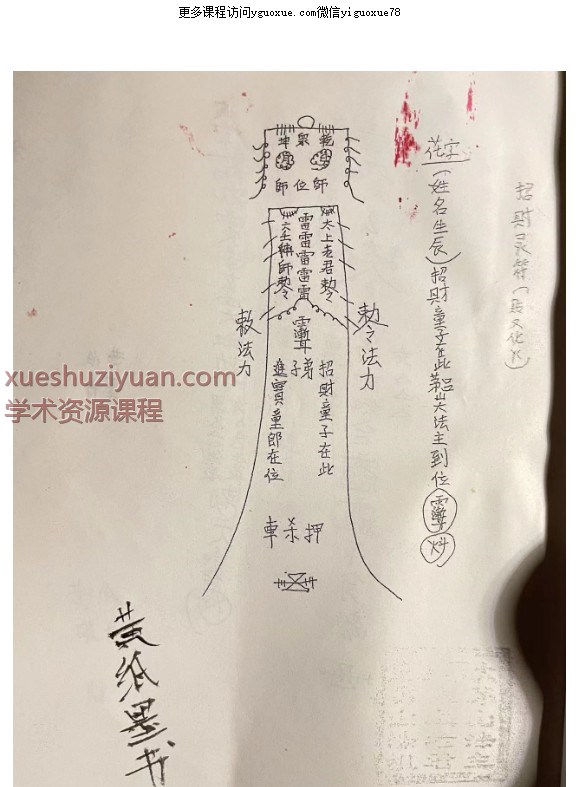 更多课程访问yguoxue.com微信yiguoxue78
招財
(姓名生辰)招財童子在此茅山大法主到位
乾
泉
坤
師位師
太上老君勅令
雷雷雷雷雷
六壬神師勅令
勅令法力
敕法力
弟子
招財童子在此
進寶童郎在位
押杀車
xueshuziyuan.com
学术资源课程
黄纸墨书